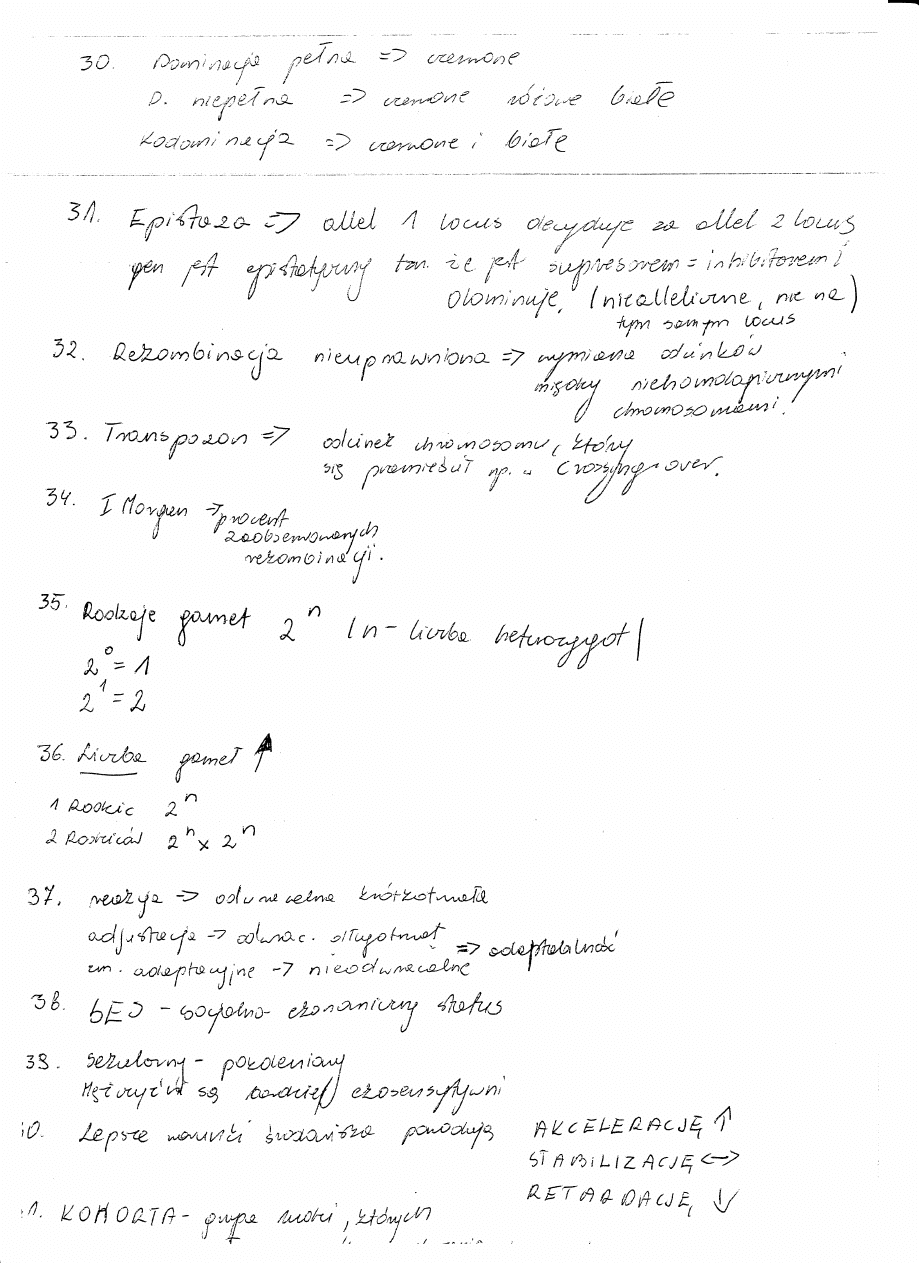 30. Dominacja pełna => czerwone
D. niepełna => czerwone różowe białe
Kodominacja => czerwone i białe
31. Epistaza => allel 1 locus decyduje za allel 2 locus
gen jest epistatyczny tzn. że jest supresorem = inhibitorem i
dominuje. (niealleliczne, nie na)
tym samym locus
32. Rekombinacja nieuprawniona => wymiana odcinków
między niehomologicznymi
chromosomami.
33. Transpozon => odcinek chromosomu, który
się przemieścił np. w Crossing-over.
34. I Morgan -> procent
zaobserwowanych
rekombinacji.
35. Rodzaje gamet 2ⁿ (n - liczba heterozygot)
2⁰ = 1
2¹ = 2
36. Liczba gamet ↑
1 Rodzic 2ⁿ
2 Rodziców 2ⁿ x 2ⁿ
37. reakcja => odwracalne krótkotrwałe
adjustacja -> odwrac. długotrwał => adaptabilność
zm. adaptacyjne -> nieodwracalne
38. SES - socjalno ekonomiczny status
39. Sekularny - pokoleniowy
Mężczyźni są bardziej ekosensytywni
0. Lepsze warunki środowiska powodują AKCELERACJĘ ↑
STABILIZACJĘ <->
RETARDACJĘ ↓
1. KOHORTA - grupa ludzi, których